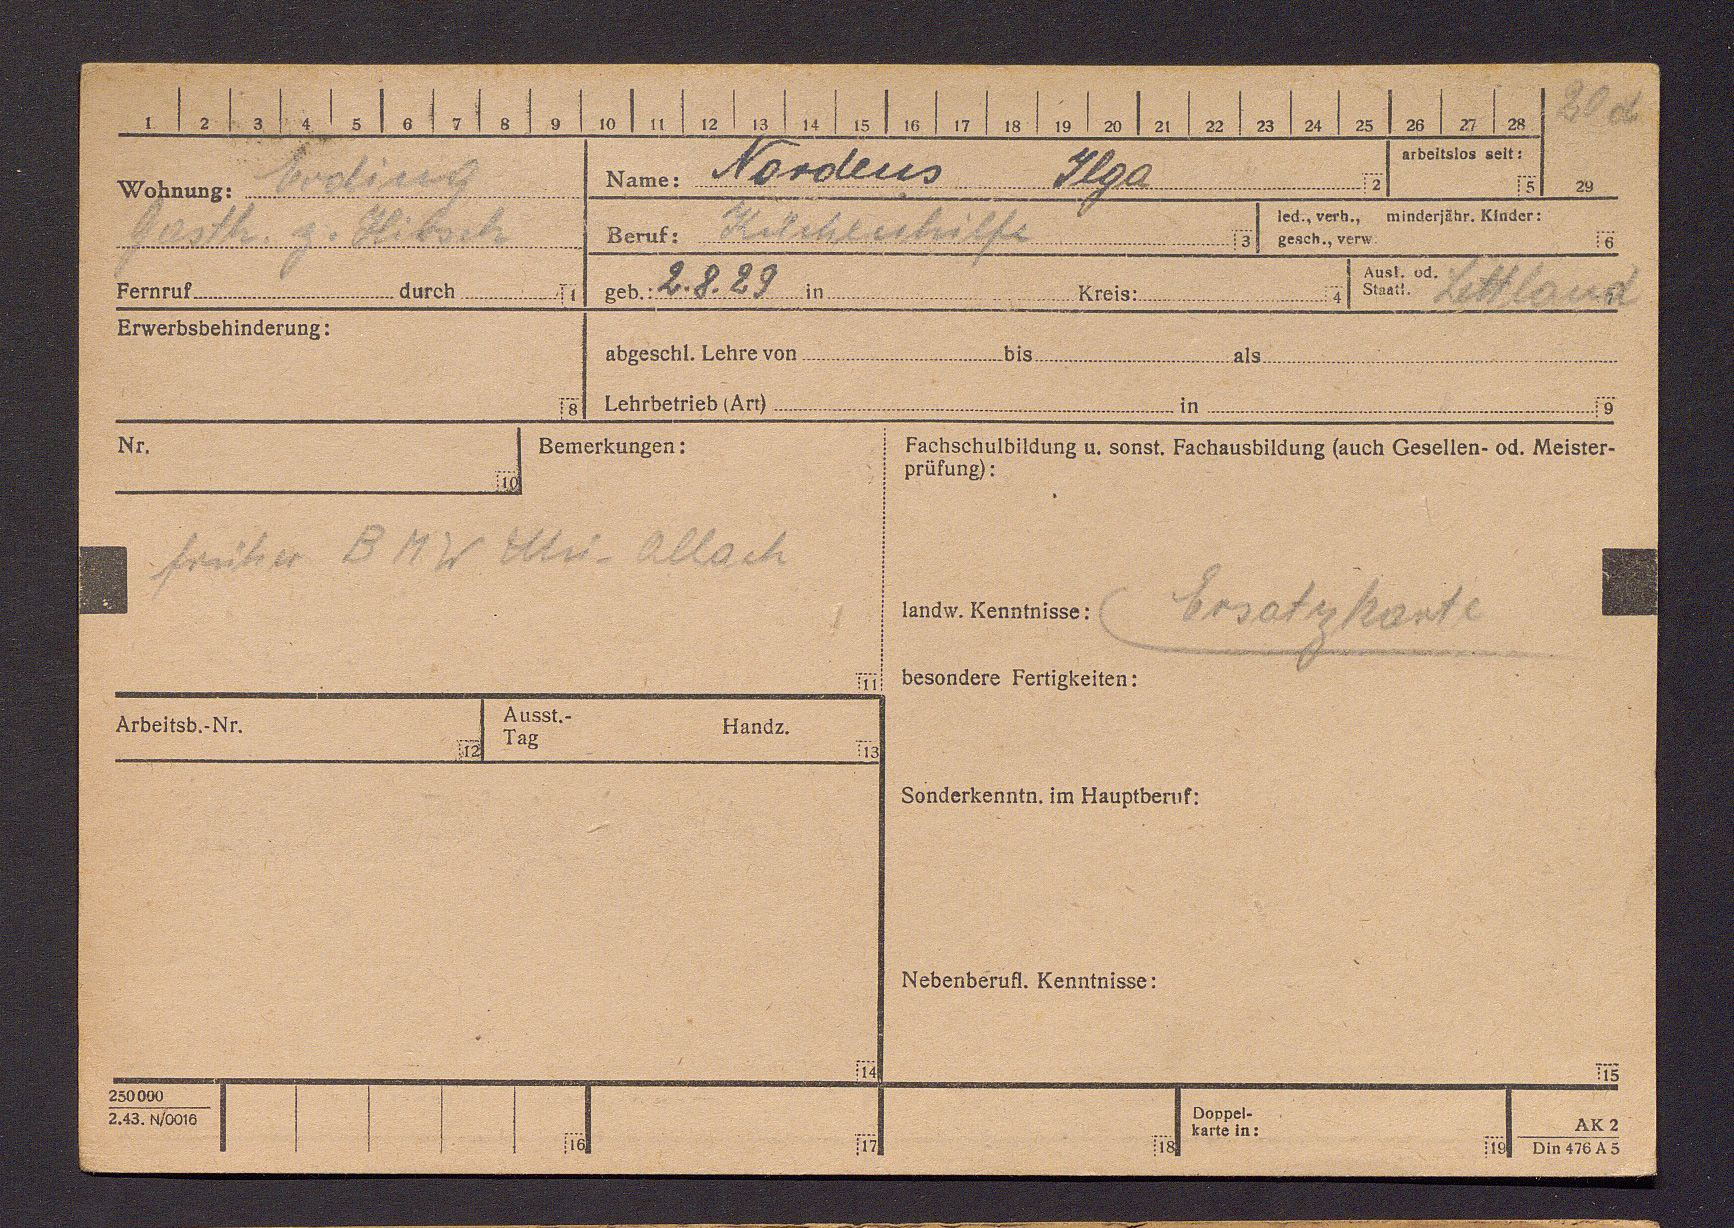 1 2 3 4 5 6 7 8 9 10 11 12 13 14 15 16 17 18 19 20 21 22 23 24 25 26 27 28 20 d
Wohnung: Erding
Gasth. z.
Fernruf durch 1
Name: Nordens Ilga 2
arbeitslos seit:
5 29
Beruf: Küchenhilfe 3
led., verh., minderjähr. Kinder:
gesch., verw. 6
geb.: 2.8.29 in Kreis: 4
Ausl. od.
Staatl. Lettland
Erwerbsbehinderung:
8
abgeschl. Lehre von bis als
Lehrbetrieb (Art) in 9
Nr.
10
Bemerkungen:
früher BMW Allach
11
Fachschulbildung u. sonst. Fachausbildung (auch Gesellen- od. Meister-
prüfung):
landw. Kenntnisse: Ersatzkarte
besondere Fertigkeiten:
Arbeitsb.-Nr. 12
Ausst.-
Tag Handz. 13
Sonderkenntn. im Hauptberuf:
Nebenberufl. Kenntnisse:
14
15
250000
2.43. N/0016
16
17
18
Doppel-
karte in: 19
AK 2
Din 476 A 5